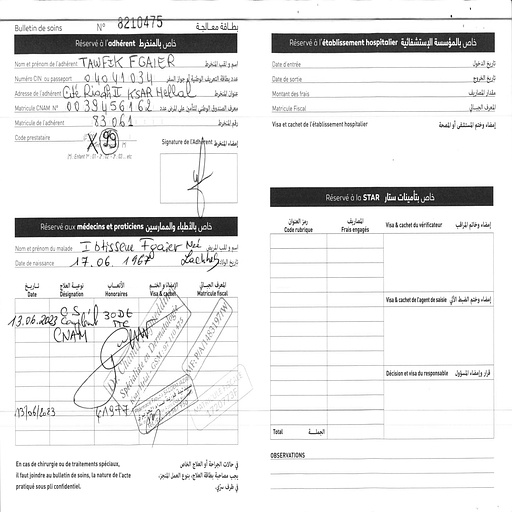 Bulletin de soins N° 8210475 بطاقة معالجة
Réservé à l'adhérent خاص بالمنخرط
Nom et prénom de l'adhérent TAWFIK FGAIER اسم و لقب المنخرط
Numéro CIN ou passeport 04041034 عدد بطاقة التعريف الوطنية أو جواز السفر
Adresse de l'adhérent Cité Riadh II KSAR Hellal عنوان المنخرط
Matricule CNAM N°
Matricule de l'adhérent 83061 رقم المنخرط
Code prestataire 99
Signature de l'Adhérent إمضاء المنخرط
Réservé aux médecins et praticiens خاص بالأطباء والممارسين
Nom et prénom du malade Ibtissem Fgaier Née اسم و لقب المريض
Date de naissance 17.06.1967
تاريخ نوعية العلاج الأتعاب الإمضاء و الختم المعرف الجبائي
Date Désignation Honoraires Visa & cachet Matricule fiscal
13.06.2023 CS 30DT
CNAM
Spécialiste en Dermatologie
13/06/2023
En cas de chirurgie ou de traitements spéciaux,
il faut joindre au bulletin de soins, la nature de l'acte
pratiqué sous pli confidentiel.
في حالات الجراحة أو العلاج الخاص
يجب مصاحبة بطاقة العلاج، بنوع العمل المنجز،
في ظرف سري.
Réservé à l'établissement hospitalier خاص بالمؤسسة الإستشفائية
Date d'entrée تاريخ الدخول
Date de sortie تاريخ الخروج
Montant des frais مقدار المصاريف
Matricule Fiscal المعرف الجبائي
Visa et cachet de l'établissement hospitalier إمضاء وختم المستشفى أو المصحة
Réservé à la STAR خاص بتأمينات ستار
رمز العنوان المصاريف
Code rubrique Frais engagés Visa & cachet du vérificateur إمضاء وخاتم المراقب
Visa & cachet de l'agent de saisie إمضاء وختم الضبط الآلي
Décision et visa du responsable قرار وإمضاء المسؤول
Total الجملة
OBSERVATIONS